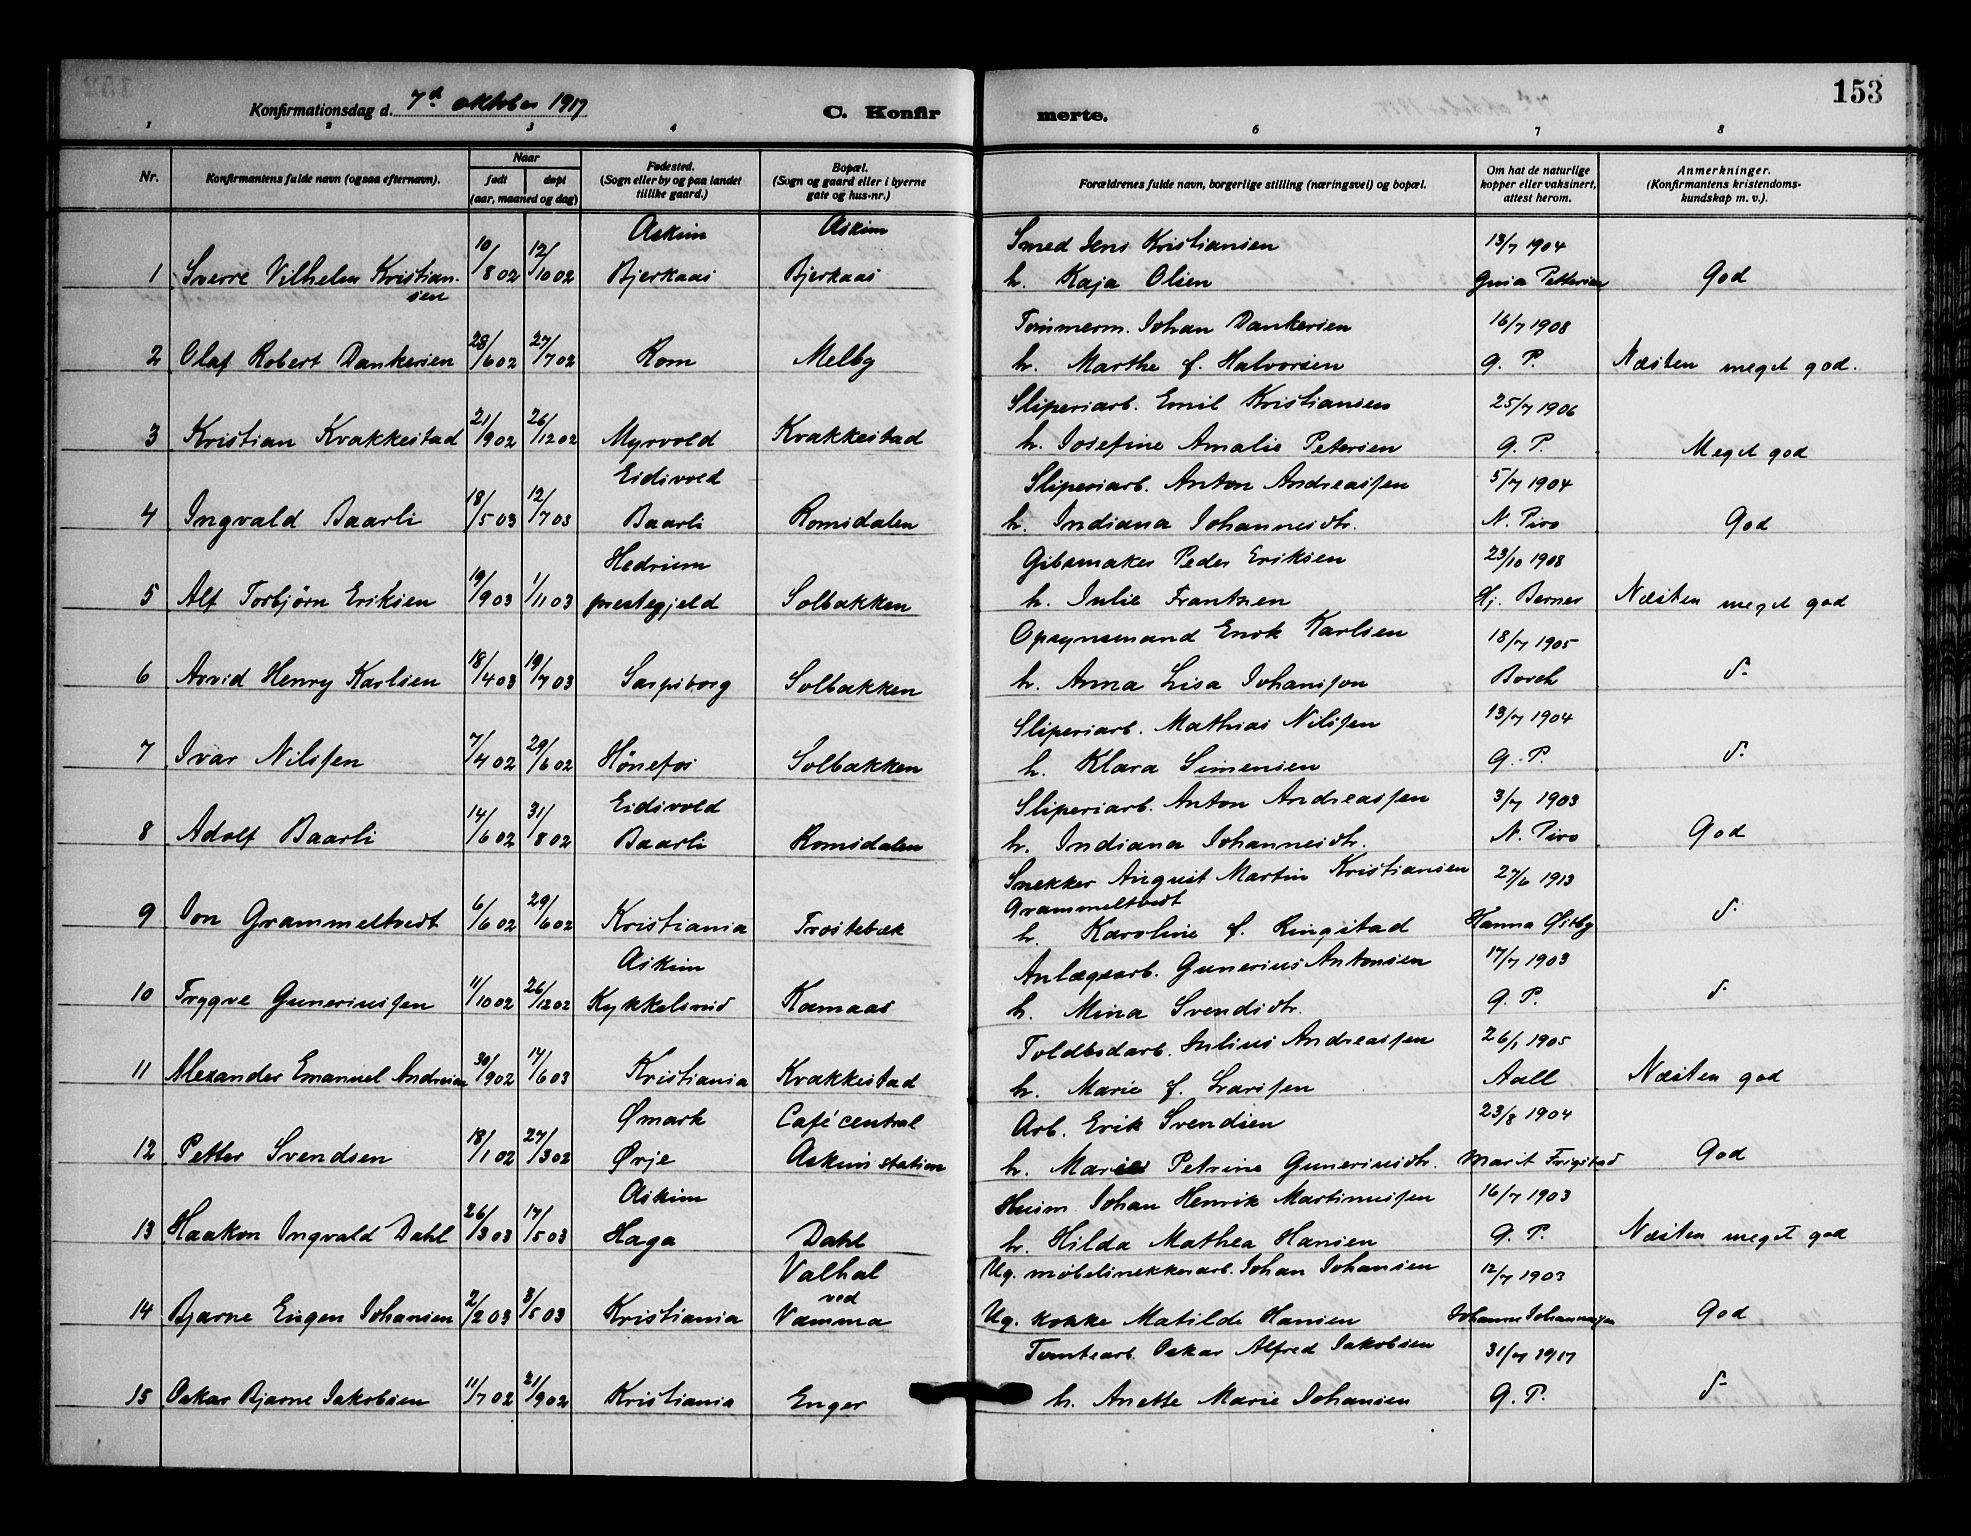 153
Konfirmationsdag d. 7de oktober 1917
C. Konfirmerte.
1 2 3 4 6 7 8
Nr.
Konfirmantens fulde navn (ogsaa efternavn).
Naar
født
døpt
(aar, maaned og dag)
Fødested.
(Sogn eller by og paa landet
tillike gaard.)
Bopæl.
(Sogn og gaard eller i byerne
gate og hus-nr.)
Forældrenes fulde navn, borgerlige stilling (næringsvei) og bopæl.
Om hat de naturlige
kopper eller vaksinert,
attest herom.
Anmerkninger.
(Konfirmantens kristendoms-
kundskap m. v.).
Askim Askim Smed Jens Kristiansen 13/7 1904
1 Sverre Vilhelm Kristian- 10/8 02 12/10 02 Bjerkaas Bjerkaas h. Kaja Olsen Gusia Pettersen God
sen
Tømmerm. Johan Dankersen 16/7 1908
2 Olaf Robert Dankersen 28/6 02 27/7 02 Rom Melby h. Marthe f. Halvorsen G. P. Næsten meget god.
Sliperiarb. Emil Kristiansen 25/7 1906
3 Kristian Kvakkestad 21/9 02 26/12 02 Myrvold Kvakkestad h. Josefine Amalie Petersen G. P. Meget god
Eidsvold Sliperiarb. Anton Andreassen 5/7 1904
4 Ingvald Baarli 18/5 03 12/7 03 Baarli Romsdalen h. Indiana Johannesdtr. N. Piro God
Hedrum Gibsmaker Peder Eriksen 23/10 1908
5 Alf Torbjørn Eriksen 19/9 03 1/11 03 prestegjeld Solbakken h. Julie Frantzen Hj. Berner Næsten meget god
Opsynsmand Enok Karlsen 18/7 1905
6 Arvid Henry Karlsen 18/4 03 19/7 03 Sarpsborg Solbakken h. Anna Lisa Johansson Borch d-
Sliperiarb. Mathias Nilssen 13/7 1904
7 Ivar Nilssen 7/4 02 29/6 02 Hønefos Solbakken h. Klara Simensen G. P. d-
Eidsvold Sliperiarb. Anton Andreassen 3/7 1903
8 Adolf Baarli 14/6 02 31/8 02 Baarli Romsdalen h. Indiana Johannesdtr. N. Piro God
Snekker August Martin Kristiansen 27/6 1913
Grammeltvedt
9 Jon Grammeltvedt 6/6 02 29/6 02 Kristiania Trøstebæk h. Karoline f. Ringstad Hanna Østby d-
Askim Anlægsarb. Gunerius Antonsen 17/7 1903
10 Trygve Guneriussen 11/10 02 26/12 02 Kykkelsrud Kamaas h. Mina Svendsdtr. G. P. d-
Toldbodarb. Julius Andreassen 26/1 1905
11 Alexander Emanuel Andresen 30/9 02 14/6 03 Kristiania Kvakkestad h. Marie f. Larssen Aall Næsten god
Ømark Café central Arb. Erik Svendsen 23/8 1904
12 Petter Svendsen 18/1 02 27/3 02 Ørje Askim station h. Marie Petrine Guneriusdtr. Marit Frigstad God
Askim Husm. Johan Henrik Martinussen 16/7 1903
13 Haakon Ingvald Dahl 26/3 03 17/5 03 Haga Dahl h. Hilda Mathea Hansen G. P. Næsten meget god
Valhal Ug. møbelsnekkerarb. Johan Johansen 12/7 1903
ved
14 Bjarne Eugen Johansen 2/2 03 3/5 03 Kristiania Vamma Ug. kokke Matilde Hansen Johannes Johannessen God
Tomtearb. Oskar Alfred Jakobsen 31/7 1917
15 Oskar Bjarne Jakobsen 11/7 02 21/9 02 Kristiania Enger h. Anette Marie Johansen G. P. d-